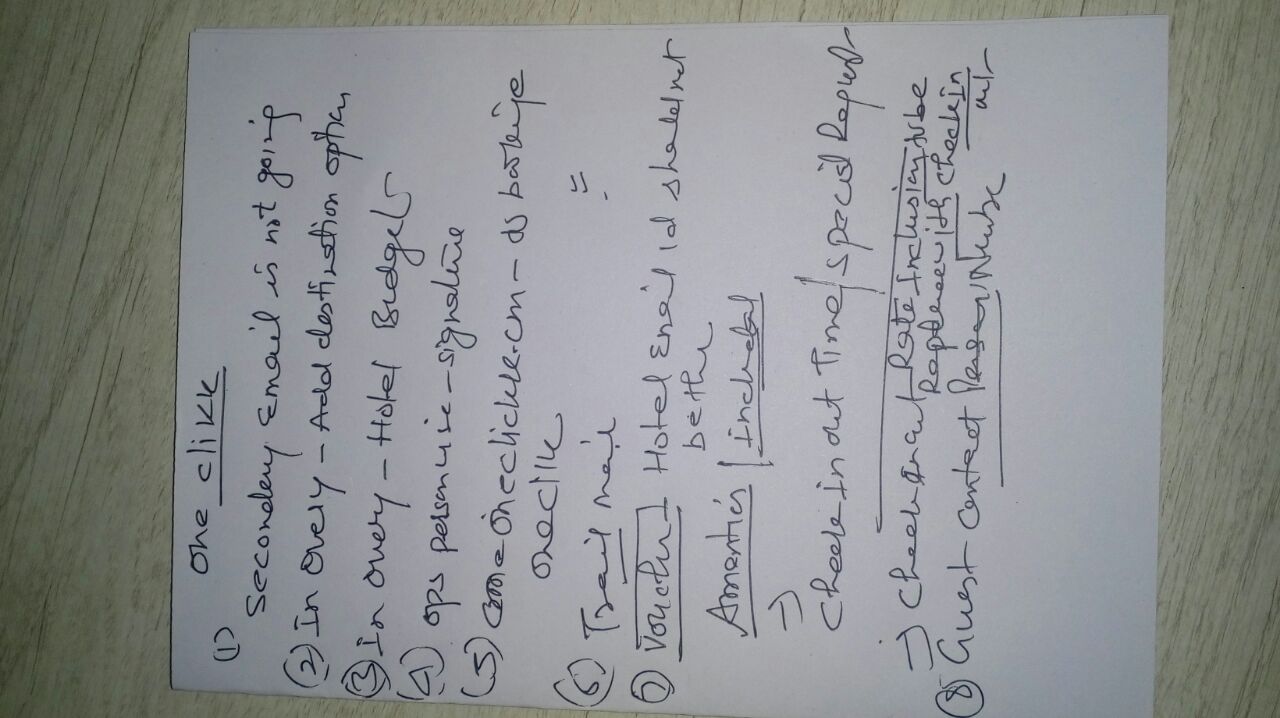 one clikk
(1) Secondary Email is not going
(2) In Query - Add destination option
(3) In Query - Hotel Budget
(4) ops person ie - signature
(5) oneclickk.com - booking
oneclikk
(6) Trail mail =
(7) Voucher Hotel Email id should not
be the
Amenities / Included
=> Check In out Time / special Request
=> Check In out Rate Inclusion to be
Replace with check in
out
(8) Guest contact Person / Number